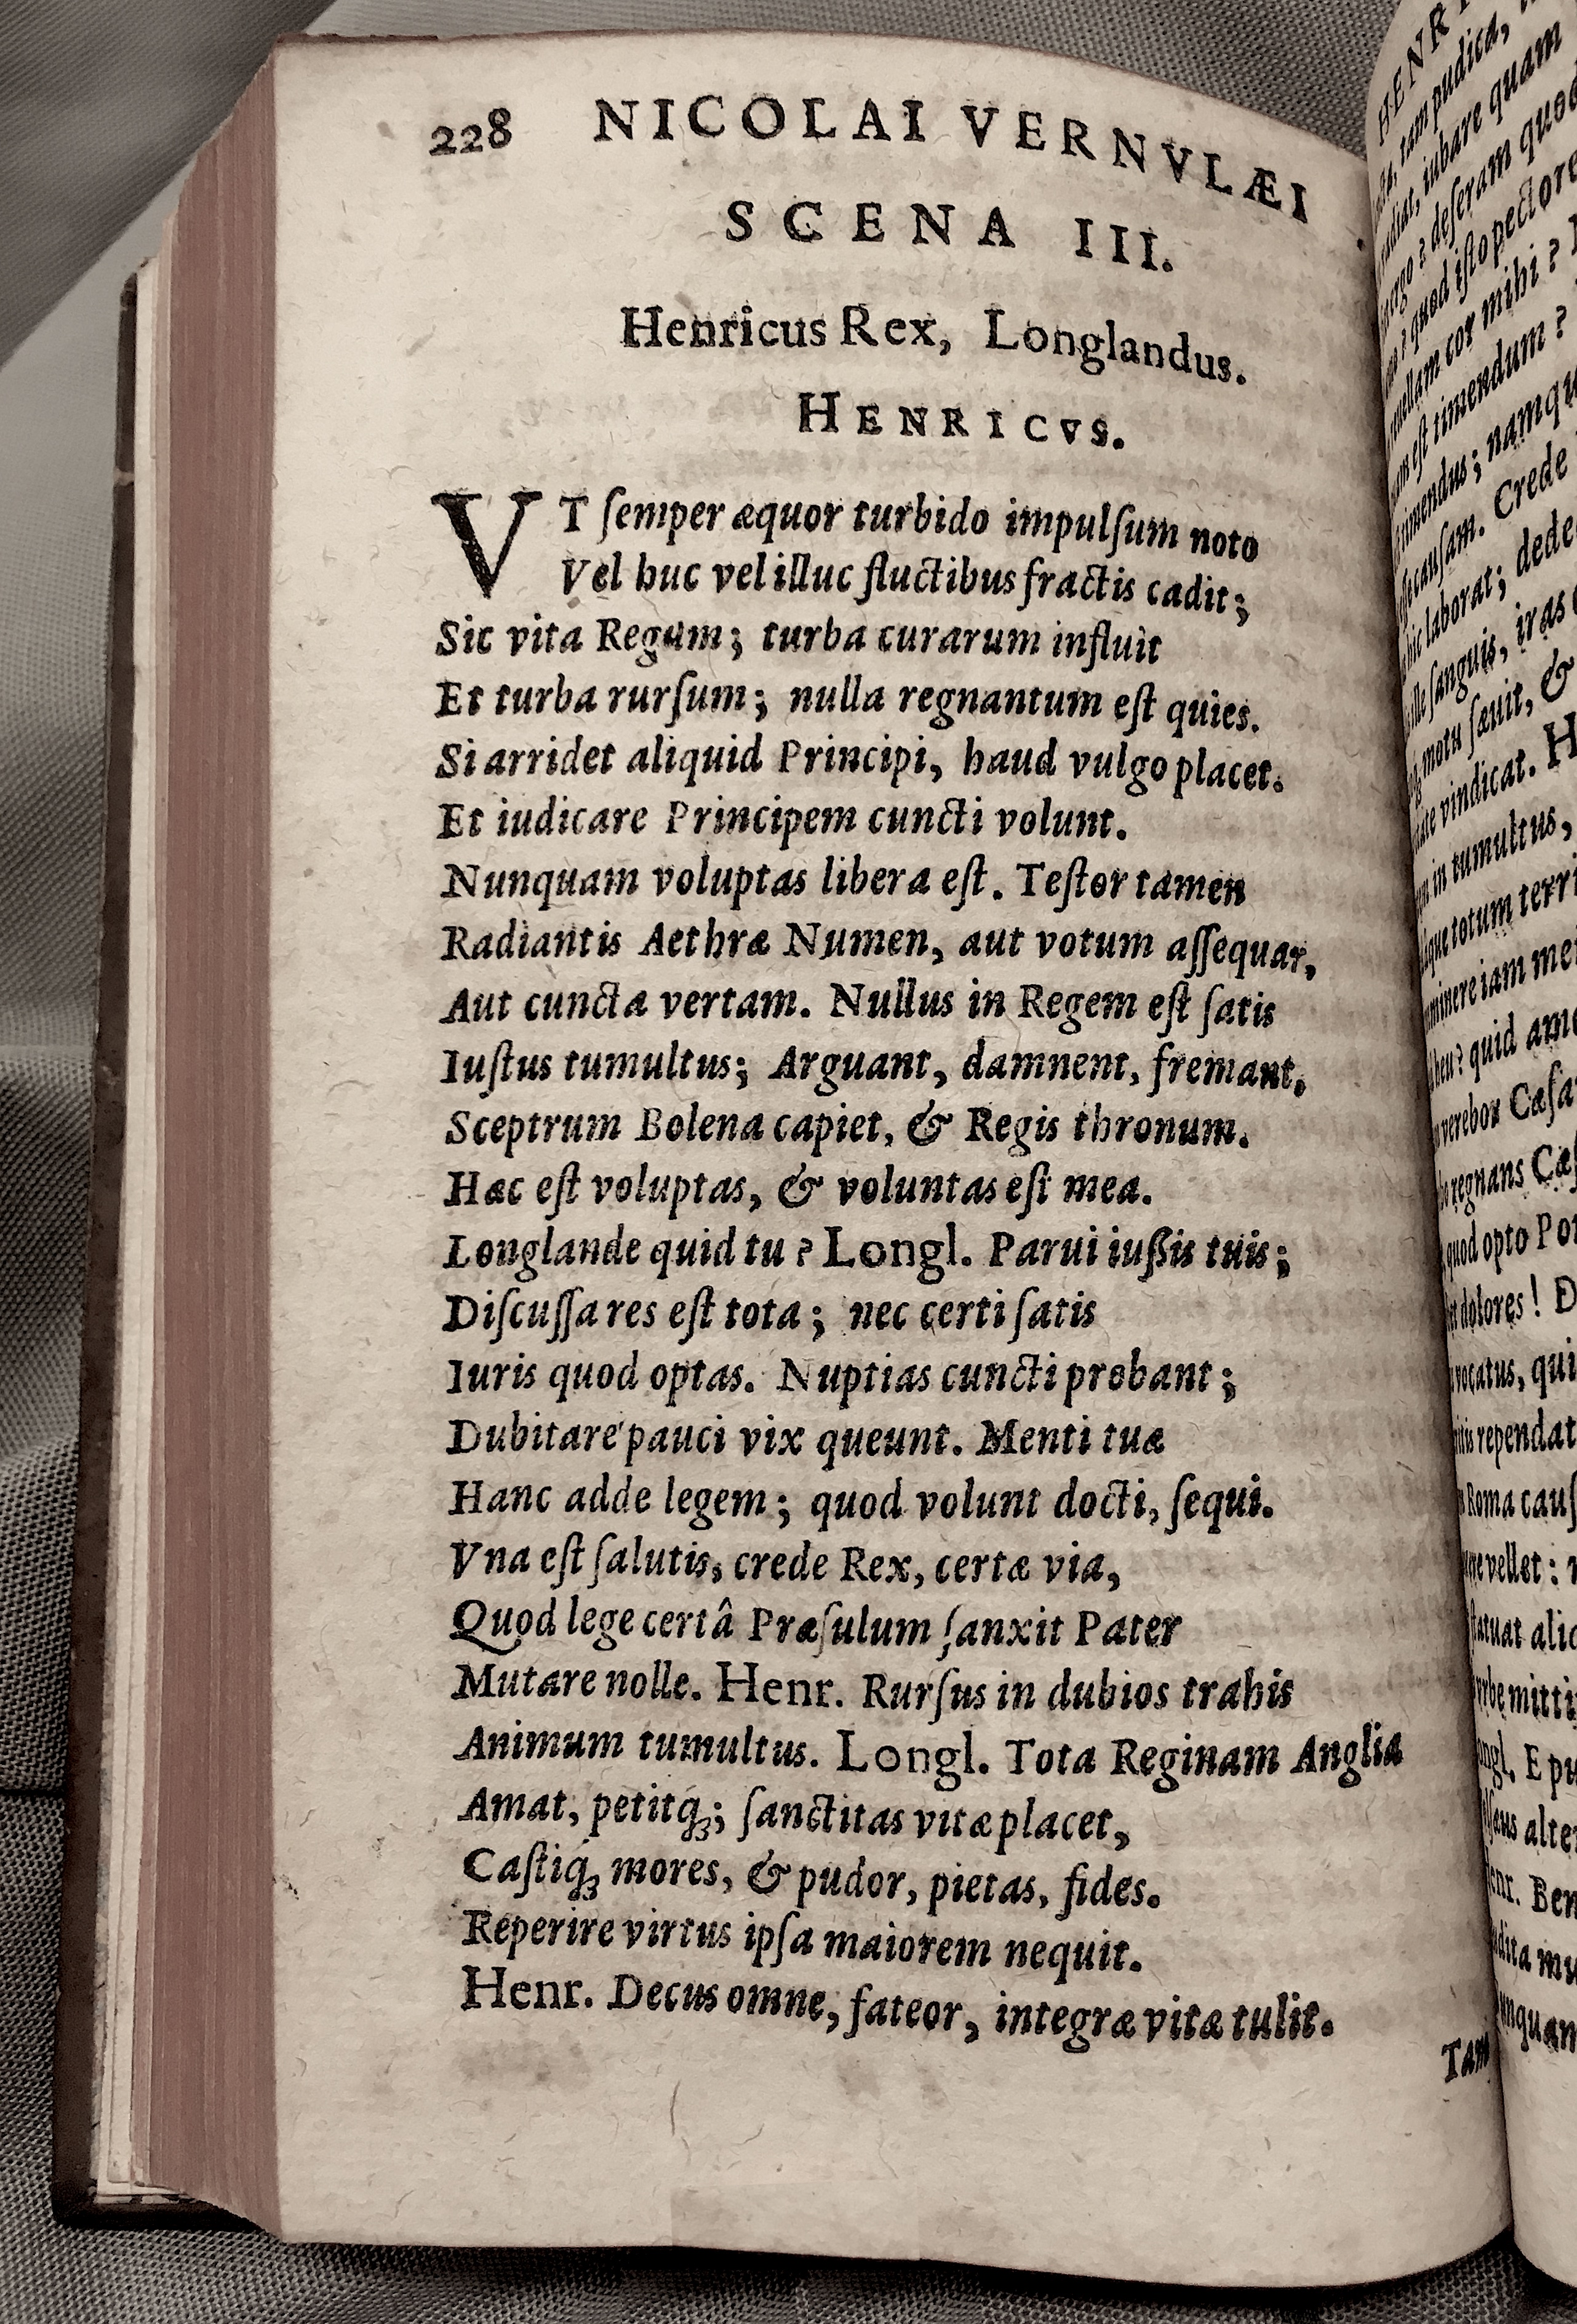 228 NICOLAI VERNVLÆI
SCENA III.
Henricus Rex, Longlandus.
HENRICVS.
VT ſemper æquor turbido impulſum noto
Vel huc vel illuc fluctibus fractis cadit;
Sic vita Regum; turba curarum influit
Et turba rurſum; nulla regnantum eſt quies.
Si arridet aliquid Principi, haud vulgo placet.
Et iudicare Principem cuncti volunt.
Nunquam voluptas libera eſt. Teſtor tamen
Radiantis Aethræ Numen, aut votum aſſequar,
Aut cuncta vertam. Nullus in Regem eſt ſatis
Iuſtus tumultus; Arguant, damnent, fremant,
Sceptrum Bolena capiet, & Regis thronum.
Hæc eſt voluptas, & voluntas eſt mea.
Longlande quid tu? Longl. Parui iußis tuis;
Diſcuſſa res eſt tota; nec certi ſatis
Iuris quod optas. Nuptias cuncti probant;
Dubitare pauci vix queunt. Menti tuæ
Hanc adde legem; quod volunt docti, ſequi.
Vna eſt ſalutis, crede Rex, certæ via,
Quod lege certâ Præſulum ſanxit Pater
Mutare nolle. Henr. Rurſus in dubios trahis
Animum tumultus. Longl. Tota Reginam Anglia
Amat, petitqꝫ; ſanctitas vitæ placet,
Caſtiqꝫ mores, & pudor, pietas, fides.
Reperire virtus ipſa maiorem nequit.
Henr. Decus omne, fateor, integræ vitæ tulit.
Tam
tam pudica,
iubare quam
deſeram quod
quod iſto pectore
cor mihi?
eſt timendum?
namqu
cauſam. Crede
laborat; dede
ſanguis, iras
motu ſæuit, &
vindicat. H
in tumultus,
totum terri
iam me
quid am
verebor Cæſa
regnans Cæſ
quod opto Po
dolores! D
qui
rependat
Roma cauſ
vellet:
alic
mitti
E pu
alte
Henr. Ben